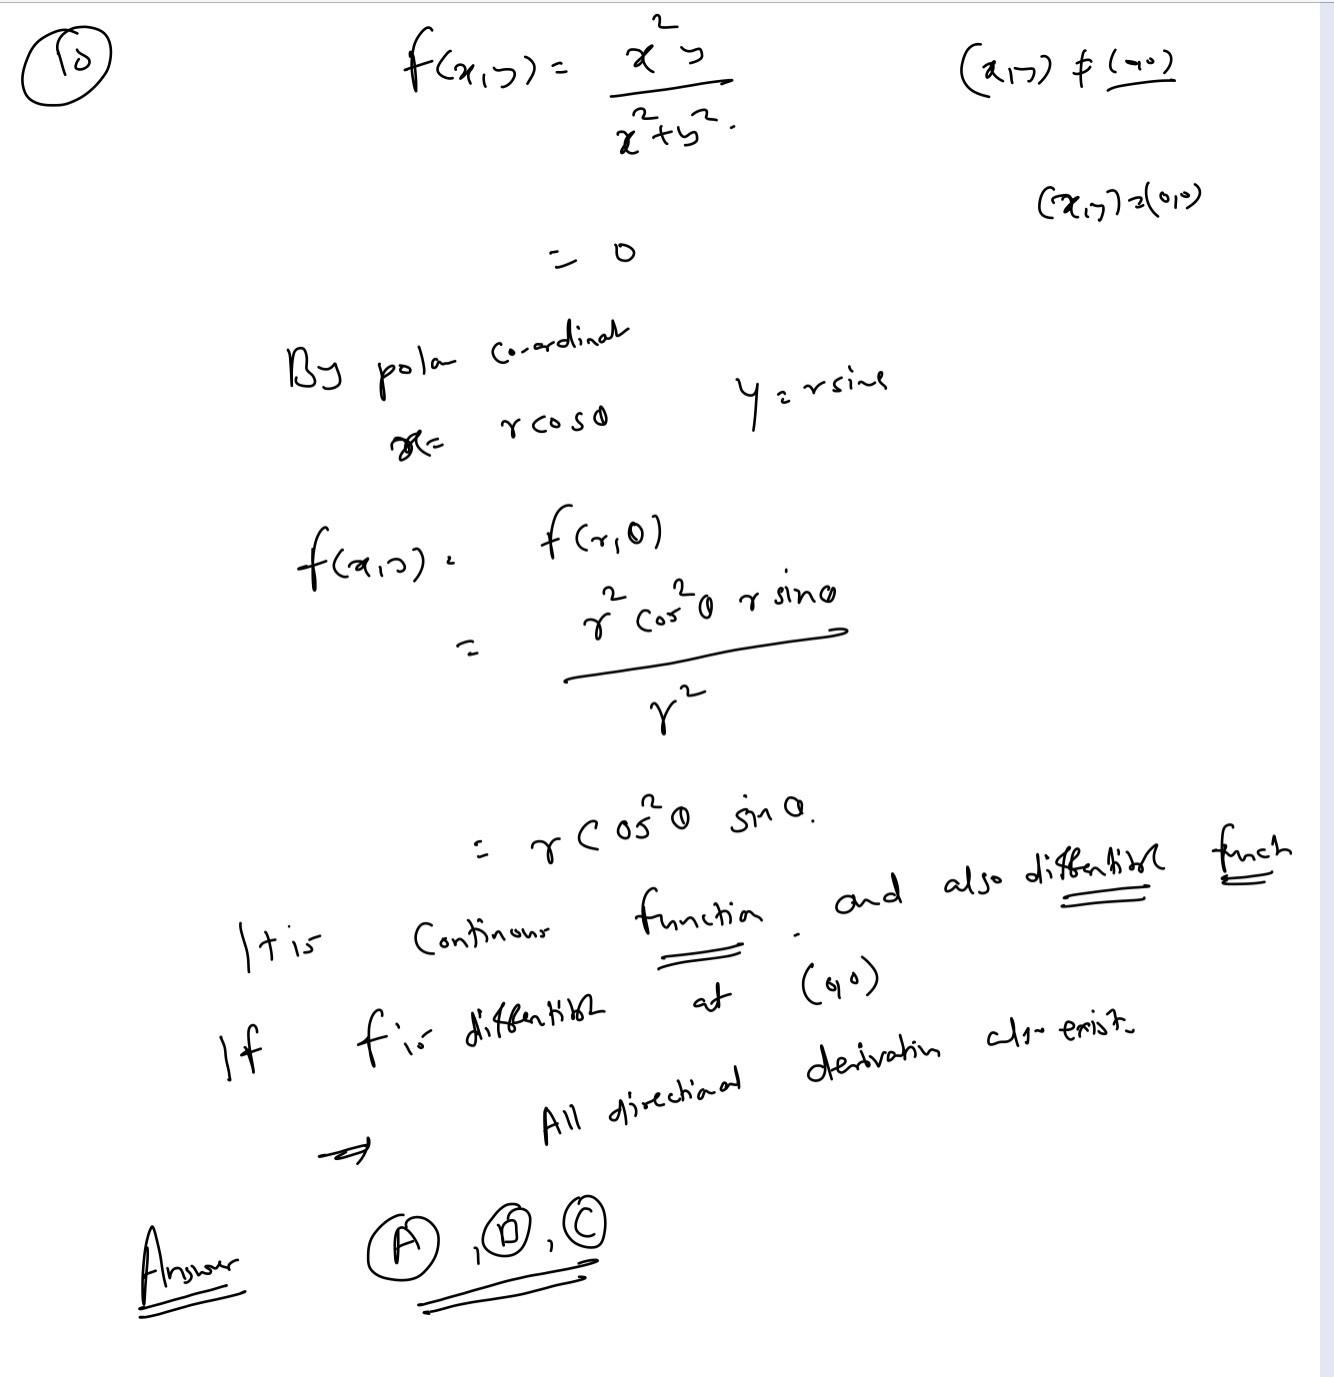 10 f(x,y) = x²y / x²+y². (x,y) ≠ (0,0)
(x,y)=(0,0)
= 0
By polar co-ordinat
x= r cosθ y = r sinθ
f(x,y) = f(r,θ)
= r² cos²θ r sinθ / r²
= r cos²θ sinθ.
It is Continous function. and also diffentible funct
If f is diffentible at (0,0)
⇒ All directional derivativ also exist.
Answer A, B, C